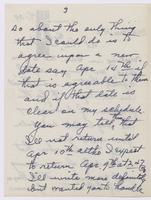 3
So about the only thing
that I could do is to
agree upon a new
date say Apr 10th if
that is agreeable to them
and if that date is
clear on my schedule
you may tell that
I'll not return until
Apr 10th altho I expect
to return Apr 9th at 2:47
I'll write more definitely
but wanted you to handle